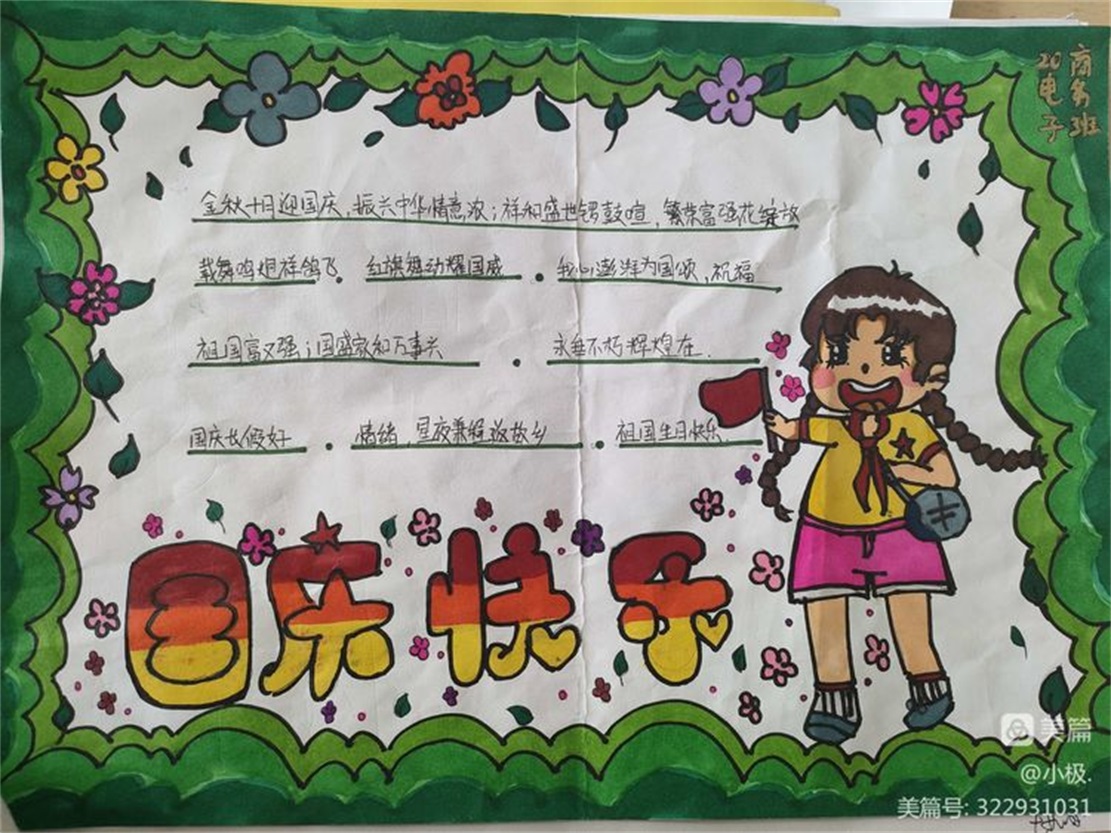 20电子
商务班
金秋十月迎国庆,振兴中华情意浓;祥和盛世锣鼓喧,繁荣富强花绽放
载舞鸣炮祥鸽飞. 红旗舞动耀国威. 我心澎湃为国颂,祝福
祖国富又强;国盛家和万事兴. 永垂不朽辉煌在.
国庆长假好. 情绪,星夜兼程返故乡. 祖国生日快乐.
国庆快乐
美篇
@小极.
美篇号: 322931031